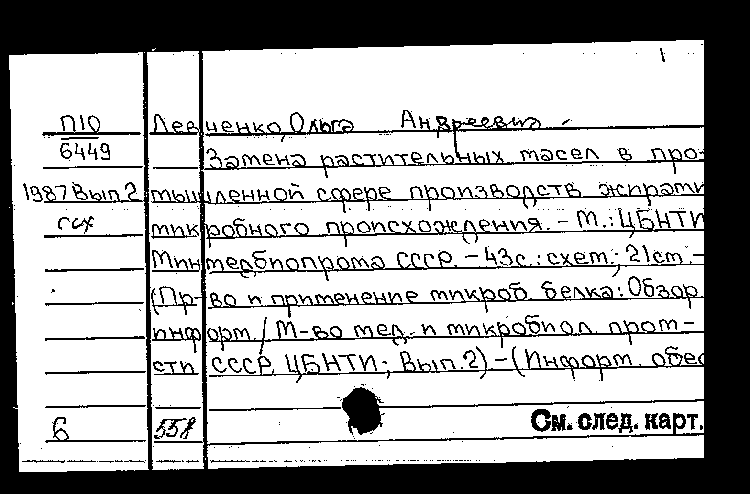 1
П10 Левченко, Ольга Андреевна
6449 Замена растительных масел в про-
1987 Вып. 2 мышленной сфере производств жирами
сих микробного происхождения. – М.: ЦБНТИ
Минмедбиопрома СССР. – 43с.: схем.; 21см. –
(Пр-во и применение микроб. белка: Обзор.
информ. / М-во мед. и микробиол. пром-
сти СССР, ЦБНТИ; Вып. 2) – (Информ. обес
6 558 См. след. карт.